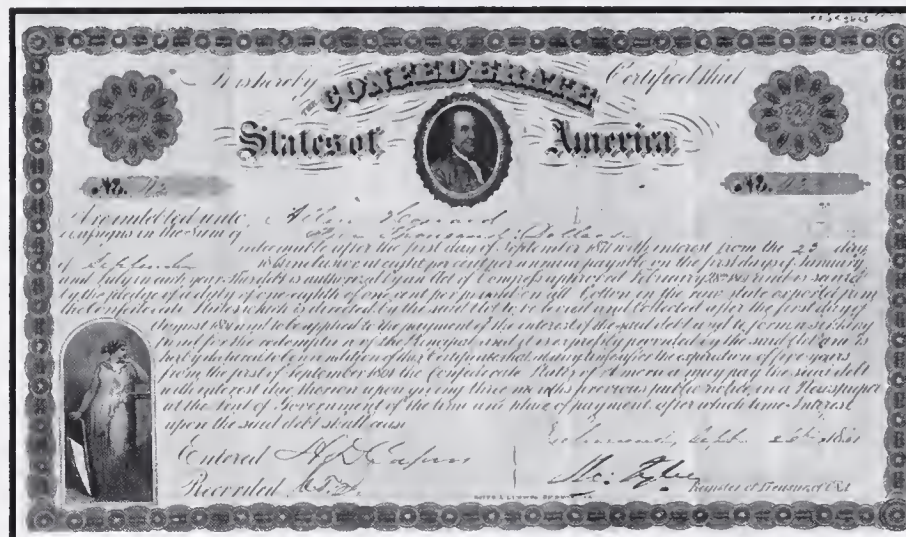 It is hereby THE CONFEDERATE Certified that
States of America
No. No.
Are indebted unto Allen
assigns in the Sum of Thousand Dollars
redeemable after the first day of September 1871 with interest from the 25 day
of September inclusive at eight per cent per annum payable on the first days of January
and July in each year. This debt is authorized by an Act of Congress approved February 28th 1861 and is secured
by the pledge of a duty of one eighth of one cent per pound on all Cotton in the raw state exported from
the Confederate States which is directed by the said Act to be levied and collected after the first day of
August 1861 and to be applied to the payment of the interest of the said debt and to form a sinking
fund for the redemption of the Principal and it is
hereby declared to be a condition of this Certificate that at any time after the expiration of five years
from the first of September 1861 the Confederate States of America may pay the said debt
with interest due thereon upon giving three months previous public notice in a Newspaper
at the Seat of Government of the time and place of payment after which time Interest
upon the said debt shall cease
Richmond, Sept. 1861
Entered
Recorded Tyler Register of Treasury C.S.A.